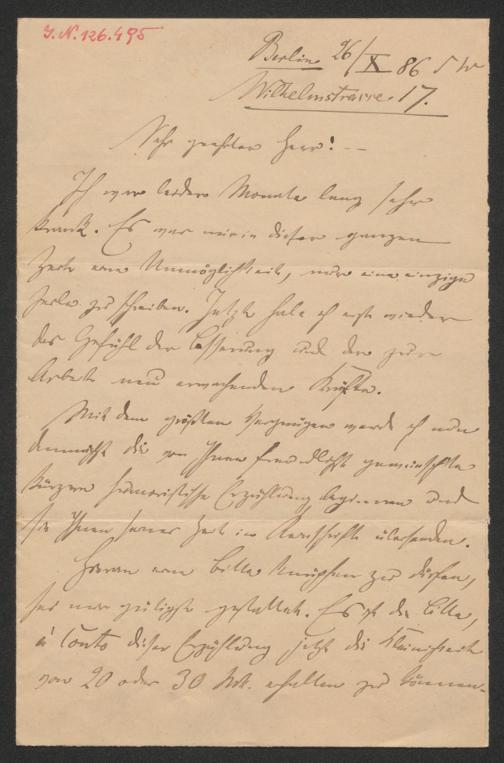 J. N. 126.495
Berlin 26/X 86 SW
Wilhelmstrasse 17.
Sehr geehrter Herr! --
Ich war leider Monate lang sehr
krank. Es war mir in dieser ganzen
Zeit eine Unmöglichkeit, nur eine einzige
Zeile zu schreiben. Jetzt habe ich erst wieder
das Gefühl der Besserung und der zur
Arbeit neu erwachenden Kräfte.
Mit dem größten Vergnügen werde ich nun
demnächst die von Ihnen freundlichst gewünschte
kürzere humoristische Erzählung beginnen und
sie Ihnen seiner Zeit in Reinschrift übersenden.
Hieran eine Bitte knüpfen zu dürfen,
sei mir gütigst gestattet. Es ist die Bitte,
à Conto dieser Erzählung jetzt die Kleinigkeit
von 20 oder 30 Mk. erhalten zu können.